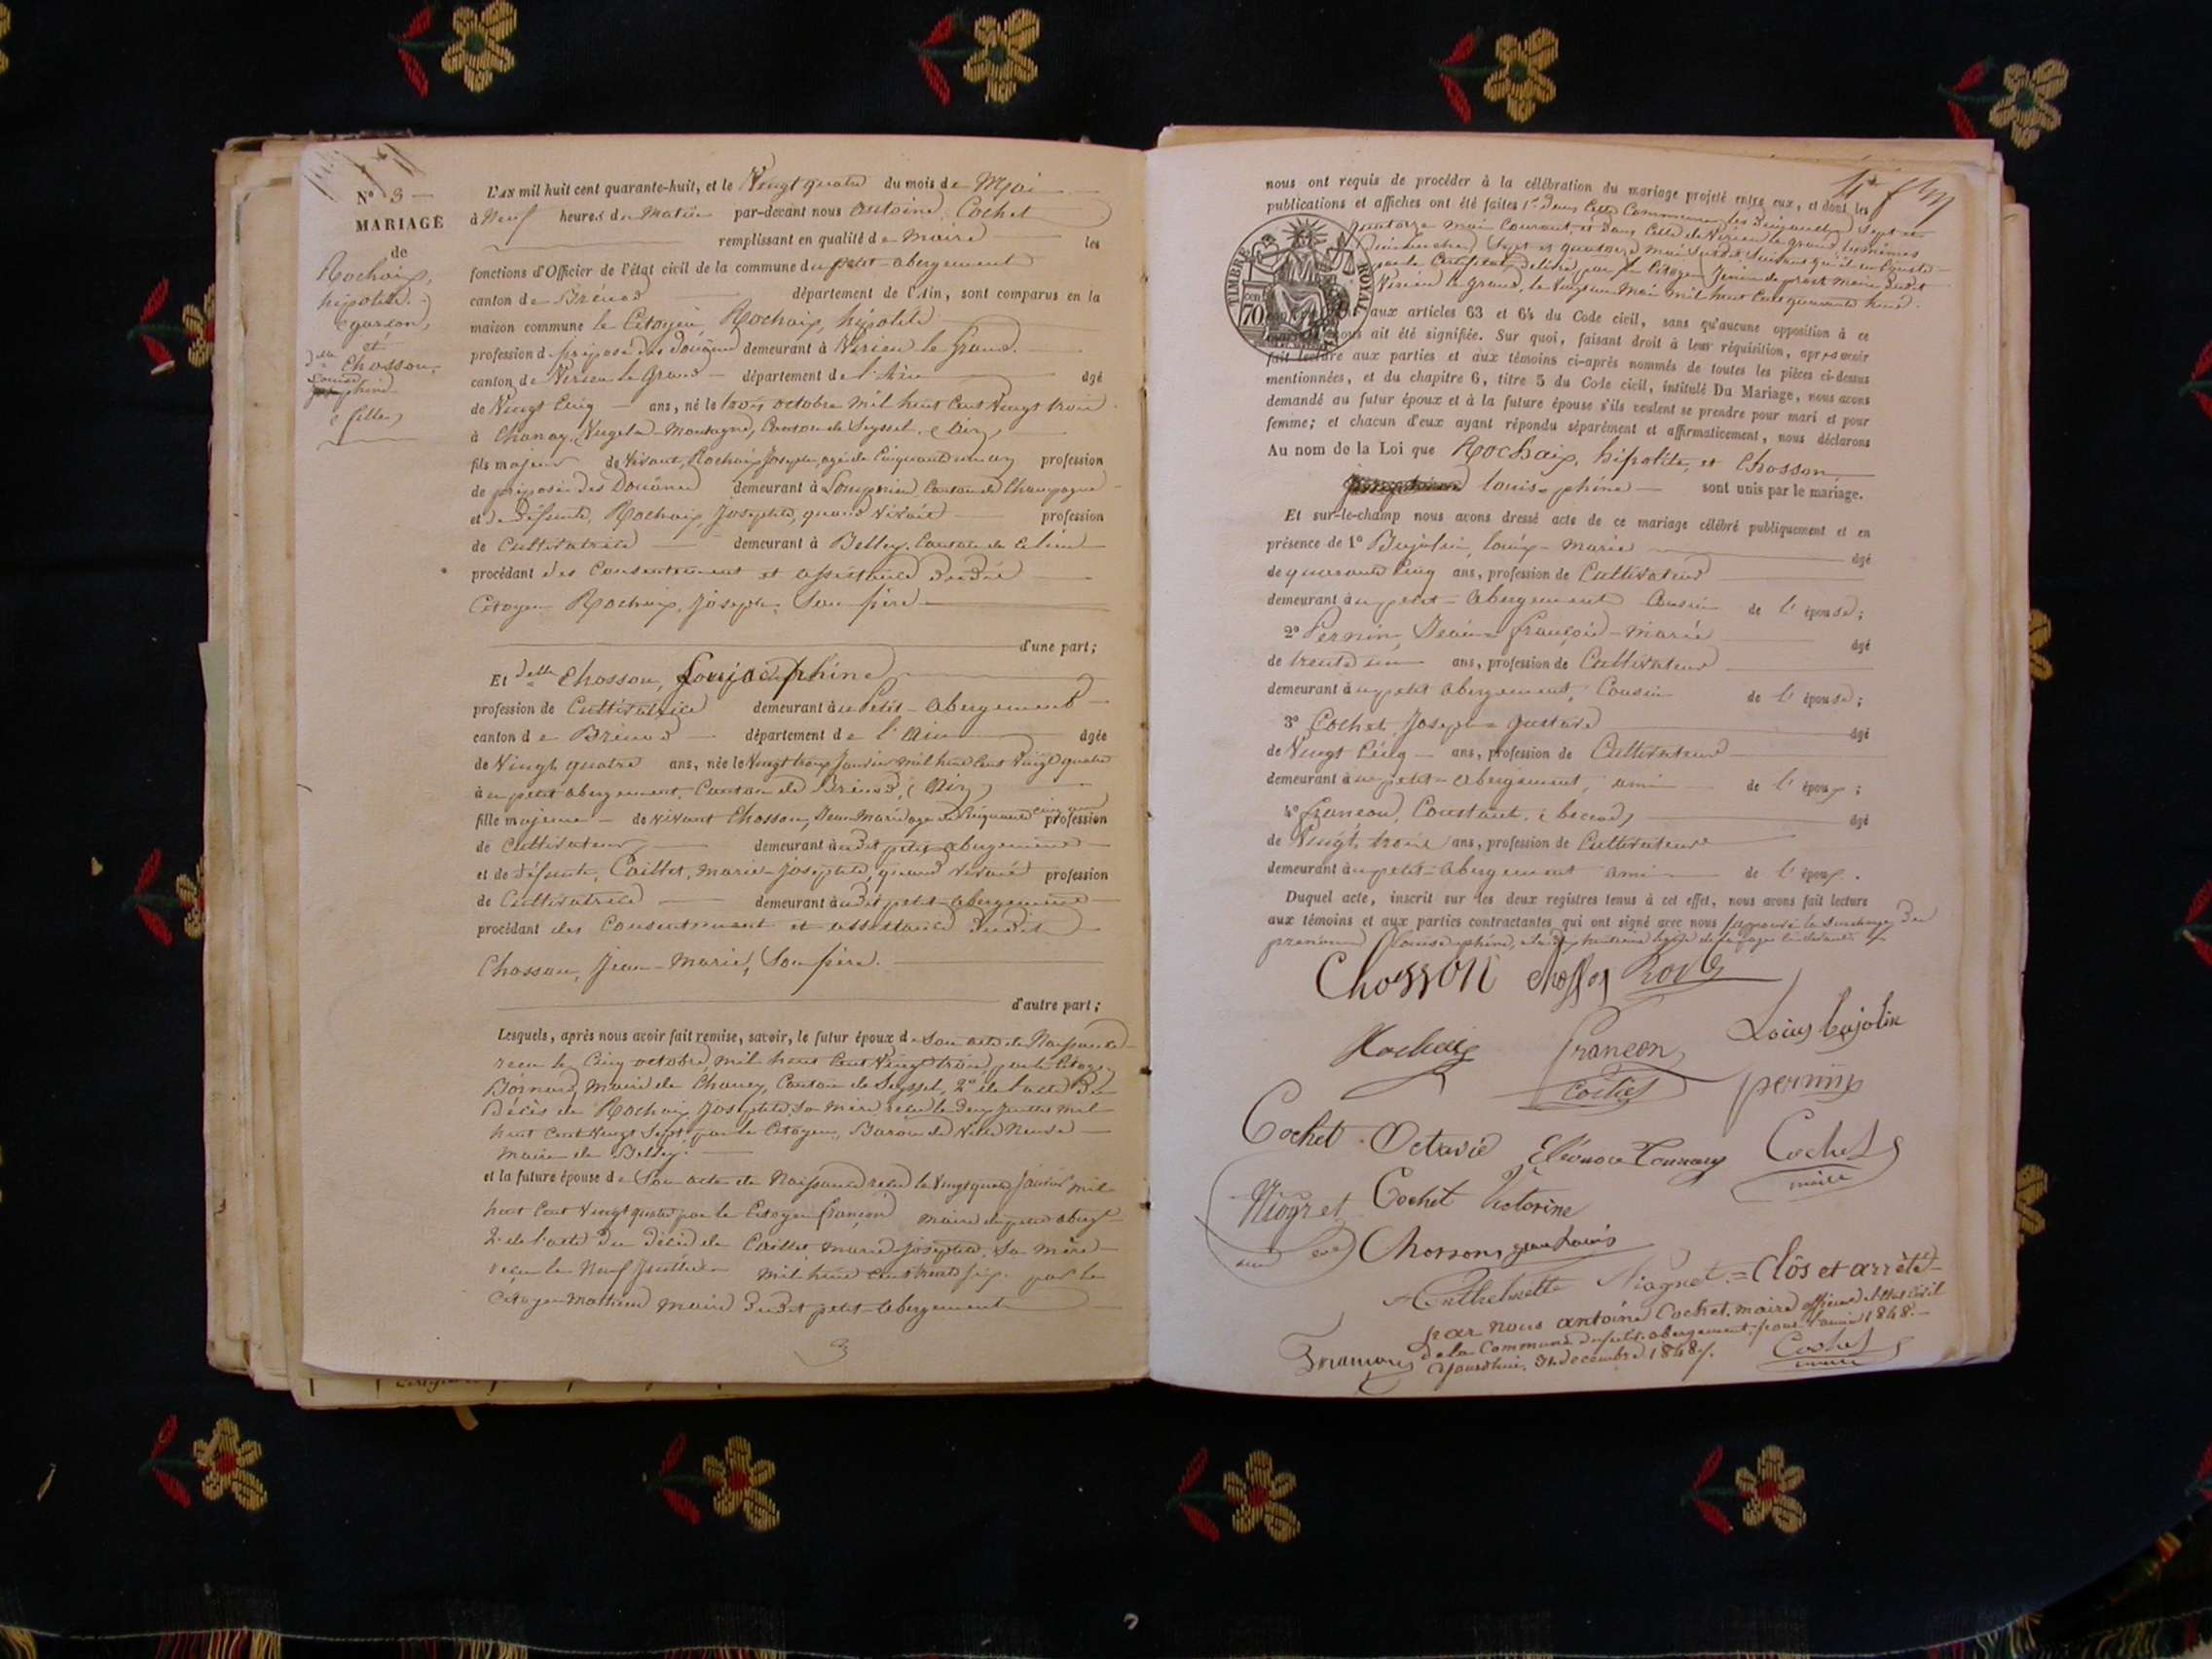 N° 3
MARIAGE
de
Rochaix,
hipolite.
(garçon)
et
dlle Chosson,
Louise
phine
(fille)
L'AN mil huit cent quarante-huit, et le Vingt quatre du mois de Mai
à Neuf heures du Matin par-devant nous antoine, Cochet
remplissant en qualité de Maire les
fonctions d'Officier de l'état civil de la commune du petit-abergement
canton de Brénod département de l'Ain, sont comparus en la
maison commune le Citoyen, Rochaix, hipolite
profession de préposé des Douânes demeurant à Virieu le Grand.
canton de Virieu le Grand département de l'Ain âgé
de Vingt Cinq ans, né le trois octobre mil huit Cent Vingt trois
à Chanay, Montagne, Canton de Seyssel (Ain)
fils majeur de Vivant, Rochaix Joseph, agé de Cinquante un an profession
de préposé des Douânes demeurant à Songieu, Canton de Champagne
et de défunte, Rochaix, Josephte, quand vivait profession
de Cultivatrice demeurant à Belley, Canton de
procédant des Consentement et assistance dudit
Citoyen Rochaix, Joseph, Son père
d'une part;
Et dlle Chosson, Louise phine
profession de Cultivatrice demeurant au Petit-abergement
canton de Brénod département de l'Ain âgée
de Vingt quatre ans, née le Vingt trois Janvier mil huit Cent Vingt quatre
au petit abergement, Canton de Brénod, (Ain)
fille majeure de vivant Chosson, Jean-Marie agé de Cinquante cinq ans profession
de Cultivateur demeurant audit petit abergement
et de défunte, Caillet, marie-josephte, quand vivait profession
de Cultivatrice demeurant audit petit-abergement
procédant des Consentement et assistance dudit
Chosson, Jean-Marie, Son père.
d'autre part;
Lesquels, après nous avoir fait remise, savoir, le futur époux de Son acte de Naissance
recu le Cinq octobre, mil huit Cent Vingt trois, par le Citoyen
Bornard, Maire de Chanay, Canton de Seyssel, 2° de l'acte du
Décès de Rochaix Josephte, Sa mère reçu le deux Juillet mil
huit Cent Vingt Sept, par le Citoyen, Baron de Ville Neuve
Maire de Belley.
et la future épouse de Son acte de Naissance recu le Vingt quatre Janvier mil
huit Cent Vingt quatre par le Citoyen françon Maire du petit aberg.t
2° de l'acte du décès de Caillet, marie josephte, Sa mère
reçu le Neuf Juillet mil huit Cent trente six par le
Citoyen Mathieu Maire dudit petit-abergement
3
nous ont requis de procéder à la célébration du mariage projeté entre eux, et dont les
publications et affiches ont été faites 1° dans Cette Commune, les Dimanches Sept et
quatorze mai Courant, et dans Celle de Virieu le grand, les mêmes
Dimanches Sept et quatorze mai Susdit, Suivant qu'il en Conste
par le Certificat délivré par le Citoyen Maire dudit
Virieu le Grand, le Vingt un Mai mil huit Cent quarante huit.
TIMBRE ROYAL
70 cent
aux articles 63 et 64 du Code civil, sans qu'aucune opposition à ce
nous ait été signifiée. Sur quoi, faisant droit à leur réquisition, après avoir
fait lecture aux parties et aux témoins ci-après nommés de toutes les pièces ci-dessus
mentionnées, et du chapitre 6, titre 5 du Code civil, intitulé Du Mariage, nous avons
demandé au futur époux et à la future épouse s'ils veulent se prendre pour mari et pour
femme; et chacun d'eux ayant répondu séparément et affirmativement, nous déclarons
Au nom de la Loi que Rochaix, hipolite, et Chosson
louise phine sont unis par le mariage.
Et sur-le-champ nous avons dressé acte de ce mariage célébré publiquement et en
présence de 1° Bujolin, louis-Marie âgé
de quarante Cinq ans, profession de Cultivateur
demeurant au petit-abergement Cousin de l'épouse;
2° Pernin, Jean-françois-Marie âgé
de trente un ans, profession de Cultivateur
demeurant au petit abergement, Cousin de l'épouse;
3° Cochet, Joseph-Gustave âgé
de Vingt Cinq ans, profession de Cultivateur
demeurant au petit-abergement, ami de l'époux;
4° françon, Constant, âgé
de Vingt trois ans, profession de Cultivateur
demeurant au petit-abergement ami de l'époux.
Duquel acte, inscrit sur les deux registres tenus à cet effet, nous avons fait lecture
aux témoins et aux parties contractantes qui ont signé avec nous approuvé la Surcharge du
prenom Louise-phine, à la dix huitième ligne de la page
Chosson Chosson
Rochaix françon Louis bujolin
Cochet pernin
Cochet Octavie Eléonore Cochet
maire
Niogret Cochet Victorine
Chosson jean Louis
Anthelmette Niogret = Clôs et arrêté
par nous antoine Cochet, maire officier de l'état Civil
de la Commune du petit-abergement, pour l'année 1848.
aujourdhui, 31 decembre 1848. Cochet
maire